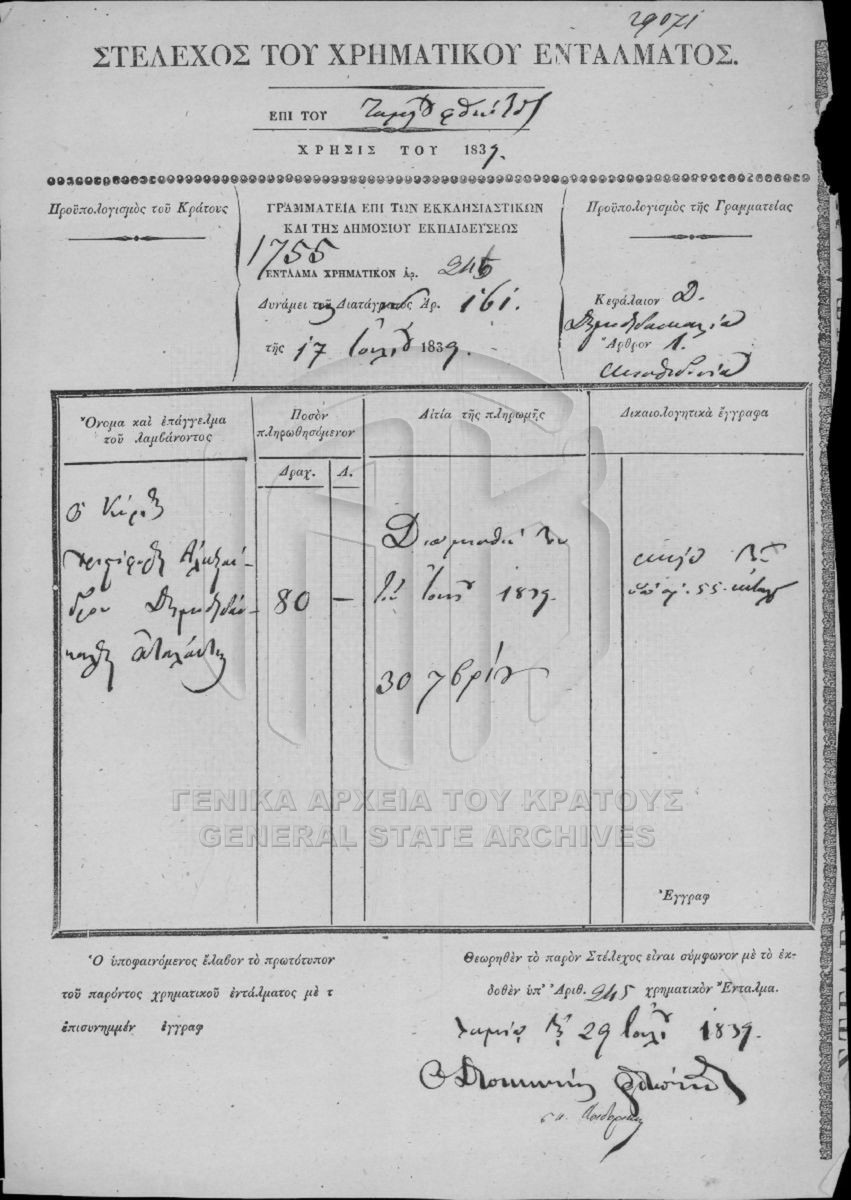 29071
ΣΤΕΛΕΧΟΣ ΤΟΥ ΧΡΗΜΑΤΙΚΟΥ ΕΝΤΑΛΜΑΤΟΣ.
ΕΠΙ ΤΟΥ
ΧΡΗΣΙΣ ΤΟΥ 1839.
Προϋπολογισμὸς τοῦ Κράτους
ΓΡΑΜΜΑΤΕΙΑ ΕΠΙ ΤΩΝ ΕΚΚΛΗΣΙΑΣΤΙΚΩΝ
ΚΑΙ ΤΗΣ ΔΗΜΟΣΙΟΥ ΕΚΠΑΙΔΕΥΣΕΩΣ
1755
ΕΝΤΑΛΜΑ ΧΡΗΜΑΤΙΚΟΝ ἀρ. 245
Δυνάμει τοῦ Διατάγματος Ἀρ. 161.
τῆς 17 Ἰουλίου 1839.
Προϋπολογισμὸς τῆς Γραμματείας
Κεφάλαιον Δ.
Δημοδιδασκαλεῖα
Ἄρθρον 1.
Μισθοδοσία
Ὄνομα καὶ ἐπάγγελμα
τοῦ λαμβάνοντος
Ποσὸν
πληρωθησόμενον
Δραχ. Λ.
Αἰτία τῆς πληρωμῆς
Δικαιολογητικὰ ἔγγραφα
ὁ Κύριος
Ἀλεξάν-
δρου Δημοδιδάσ-
καλος Ἀταλάντης
80 —
Διὰ μισθόν του
Ἰουλ 1839.
30
ὑπ' ἀρ. 55.
Ἔγγραφ
ΓΕΝΙΚΑ ΑΡΧΕΙΑ ΤΟΥ ΚΡΑΤΟΥΣ
GENERAL STATE ARCHIVES
Ὁ ὑποφαινόμενος ἔλαβον τὸ πρωτότυπον
τοῦ παρόντος χρηματικοῦ ἐντάλματος μὲ τ
ἐπισυνημμέν ἐγγραφ
Θεωρηθὲν τὸ παρὸν Στέλεχος εἶναι σύμφωνον μὲ τὸ ἐκ-
δοθὲν ὑπ' Ἀριθ. 245 χρηματικὸν Ἔνταλμα.
29 Ἰουλίου 1839.
Ὁ